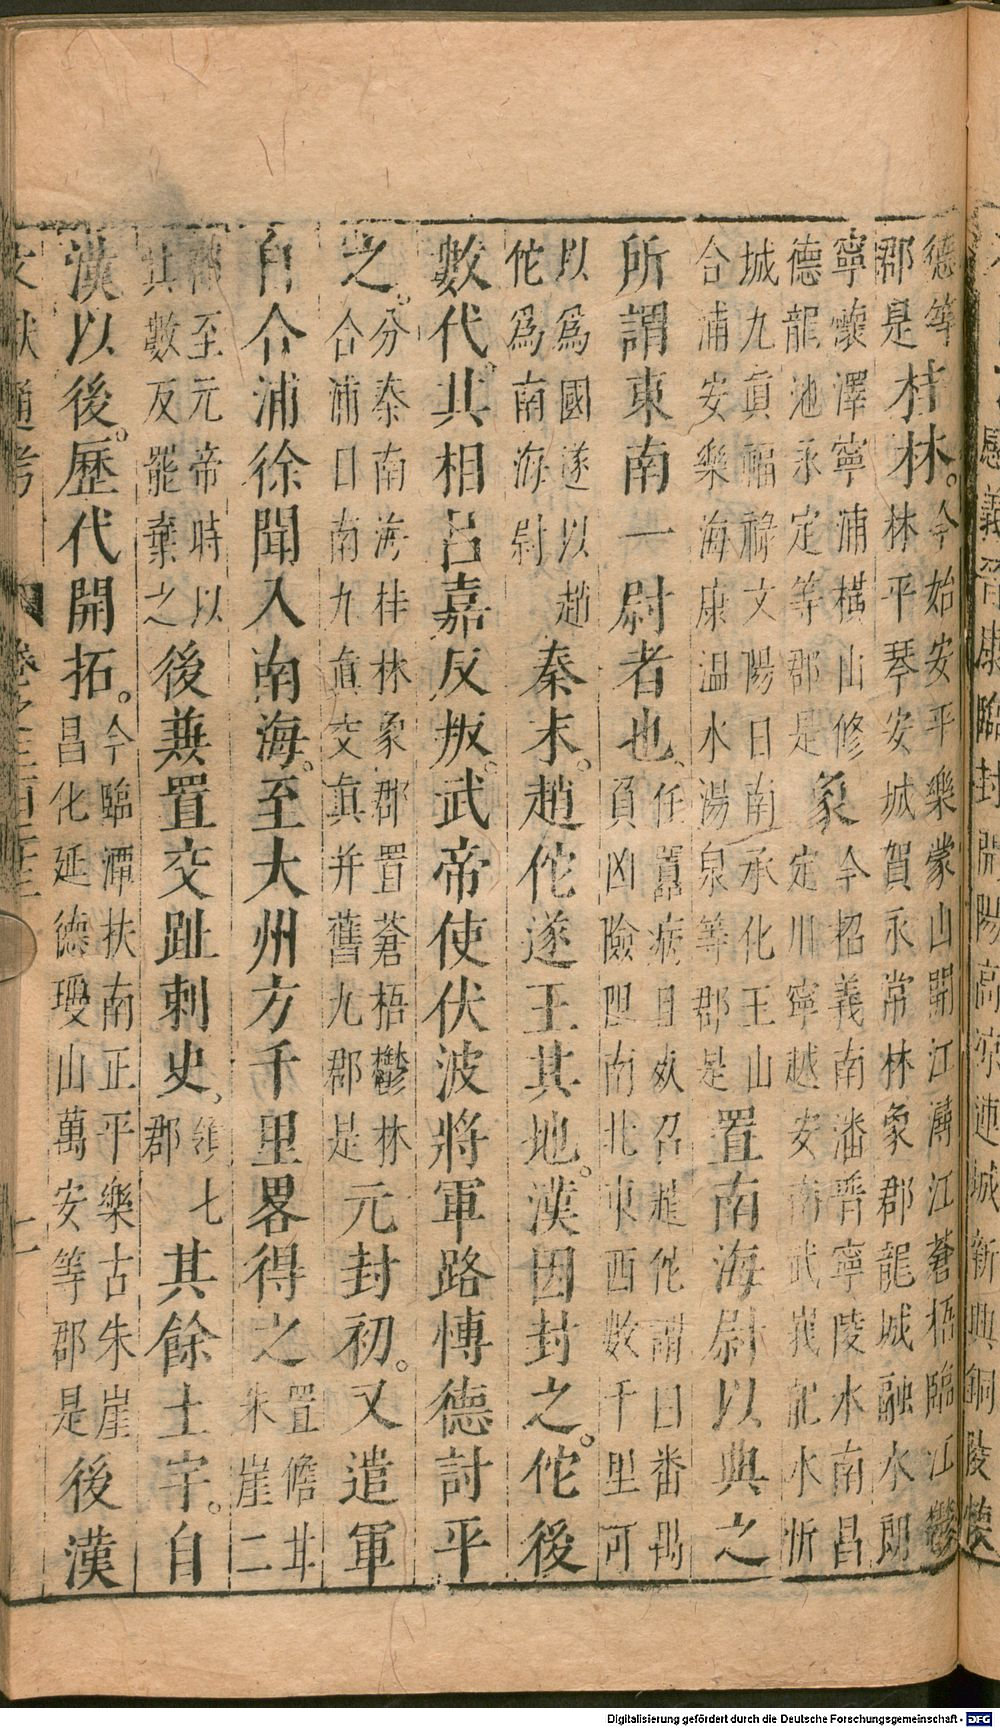 愿義晉康臨封開陽高涼連城新興銅陵懷
德等
郡是
桂林。
今始安平樂蒙山開江潯江蒼梧臨江鬱
林平琴安城賀永常林象郡龍城融水朗
寧懷澤寧浦橫山修
德龍池永定等郡是
象
今招義南潘晉寧陵水南昌
定川寧越安南武峩龍水忻
城九眞福祿文陽日南承化王山
合浦安樂海康温水湯泉等郡是
置南海尉以典之
所謂東南一尉者也、
任囂病且死召趙佗謂曰番禺
負凶險阻南北東西數千里可
以爲國遂以趙
佗爲南海尉
秦末。趙佗遂王其地。漢因封之。佗後
數代。其相呂嘉反叛。武帝使伏波將軍路愽德討平
之。
分秦南海桂林象郡置蒼梧鬱林
合浦日南九眞交眞并舊九郡是
元封初。又遣軍
自合浦徐聞入南海。至大州方千里畧得之
置儋耳
朱崖二
郡至元帝時以
其數反罷棄之
後兼置交趾刺史。
領七
郡
其餘土宇。自
漢以後。歷代開拓。
今臨潭扶南正平樂古朱崖
昌化延德瓊山萬安等郡是
後漢
文獻通考
Digitalisierung gefördert durch die Deutsche Forschungsgemeinschaft - DFG